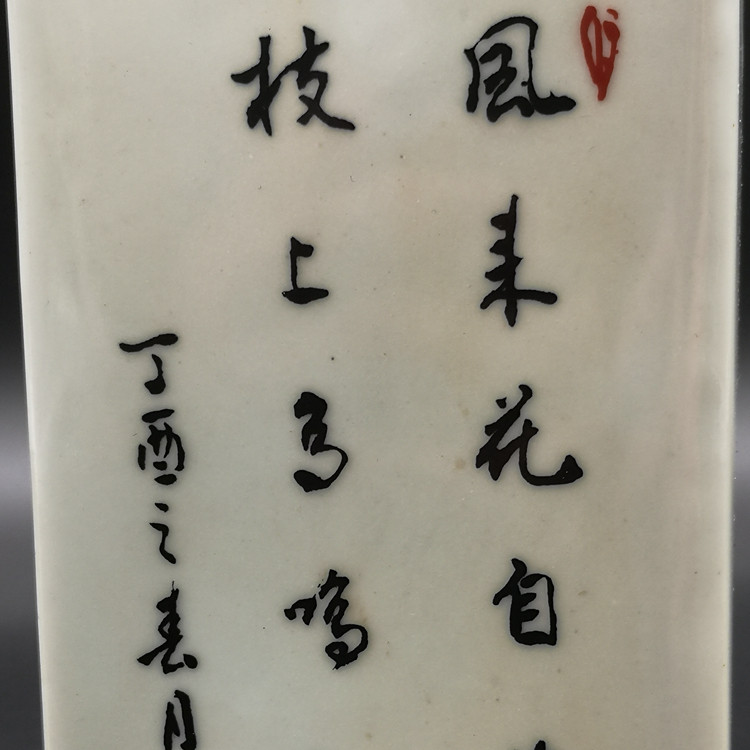 風来花自
枝上鳥鳴
丁酉之春月